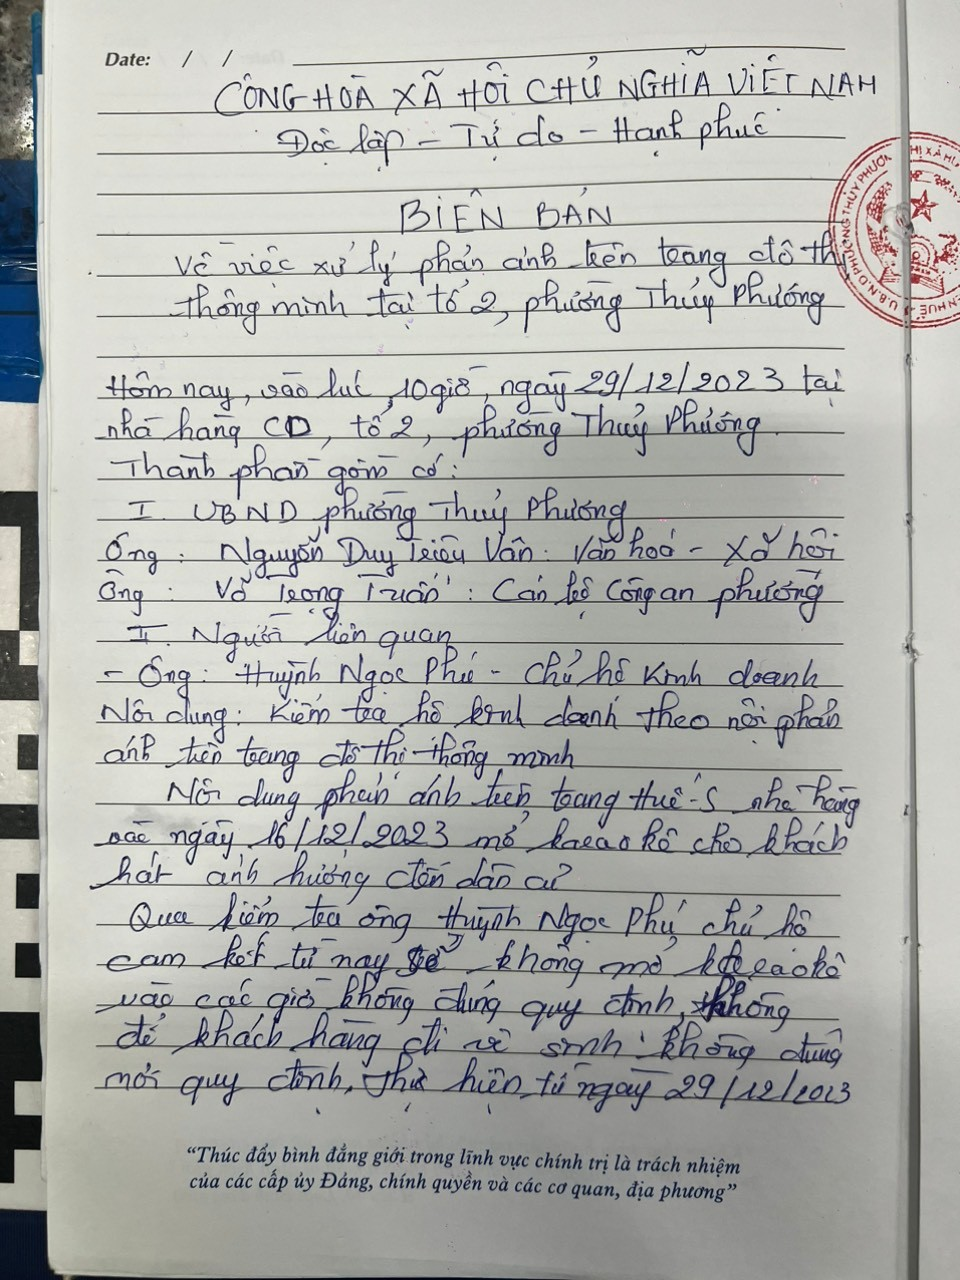 Date: / /
CỘNG HOÀ XÃ HỘI CHỦ NGHĨA VIỆT NAM
Độc lập - Tự do - Hạnh phúc
BIÊN BẢN
Về việc xử lý phản ánh trên trang đô thị
thông minh tại tổ 2, phường Thủy Phương
Hôm nay, vào lúc 10 giờ, ngày 29/12/2023 tại
nhà hàng CD, tổ 2, phường Thủy Phương
Thành phần gồm có:
I. UBND phường Thủy Phương
Ông: Nguyễn Duy Triều Vân: Văn hoá - Xã hội
Ông: Võ Trọng Tuấn: Cán bộ Công an phường
II. Người liên quan
- Ông: Huỳnh Ngọc Phú - Chủ hộ Kinh doanh
Nội dung: Kiểm tra hộ kinh doanh theo nội phản
ánh trên trang đô thị thông minh
Nội dung phản ánh trên trang Huế-S nhà hàng
vào ngày 16/12/2023 mở karaokê cho khách
hát ảnh hưởng đến dân cư
Qua kiểm tra ông Huỳnh Ngọc Phú chủ hộ
cam kết từ nay sẽ không mở karaokê
vào các giờ không đúng quy định, không
để khách hàng đi vệ sinh không đúng
nơi quy định, thực hiện từ ngày 29/12/2023
"Thúc đẩy bình đẳng giới trong lĩnh vực chính trị là trách nhiệm
của các cấp ủy Đảng, chính quyền và các cơ quan, địa phương"
U.B.N.D PHƯỜNG THỦY PHƯƠNG